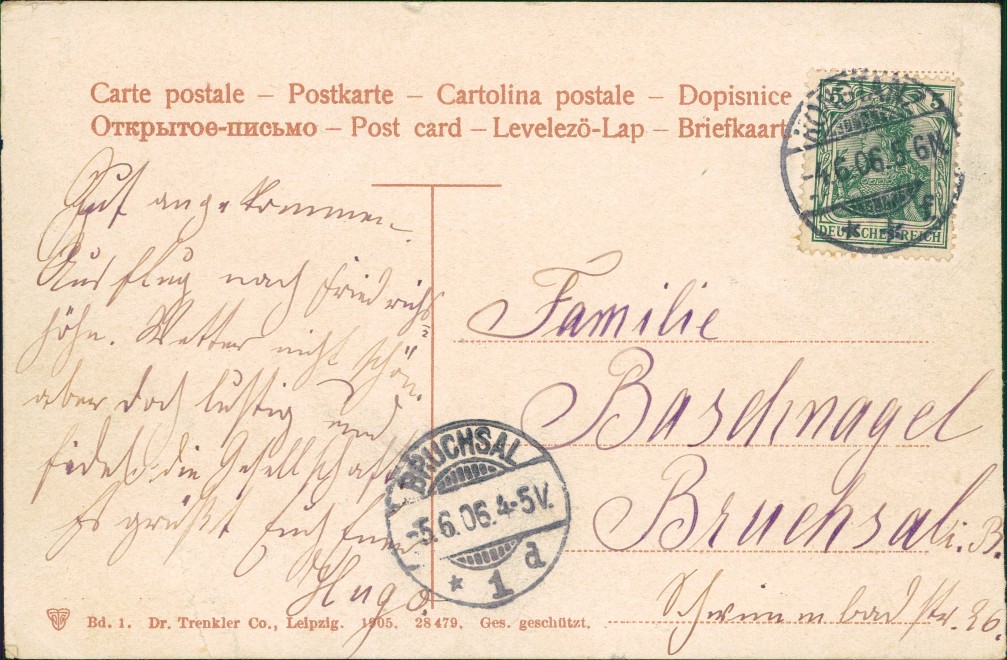 Carte postale – Postkarte – Cartolina postale – Dopisnice
Открытое-письмо – Post card – Levelezö-Lap – Briefkaart
5 5
DEUTSCHES REICH
KONSTANZ
-4.6.06. 5-6N.
* * f
Gut angekommen.
Ausflug nach Friedrichs=
höhn. Wetter nicht schön,
aber doch lustig und
fidel. die Gesellschaft
Es grüßt Euch
Hugo
Familie
Baschnagel
Bruchsal i. B.
Schwimmbadstr. 26.
BRUCHSAL
-5.6.06. 4-5V.
* 1 d
Bd. 1. Dr. Trenkler Co., Leipzig. 1905. 28 479. Ges. geschützt.